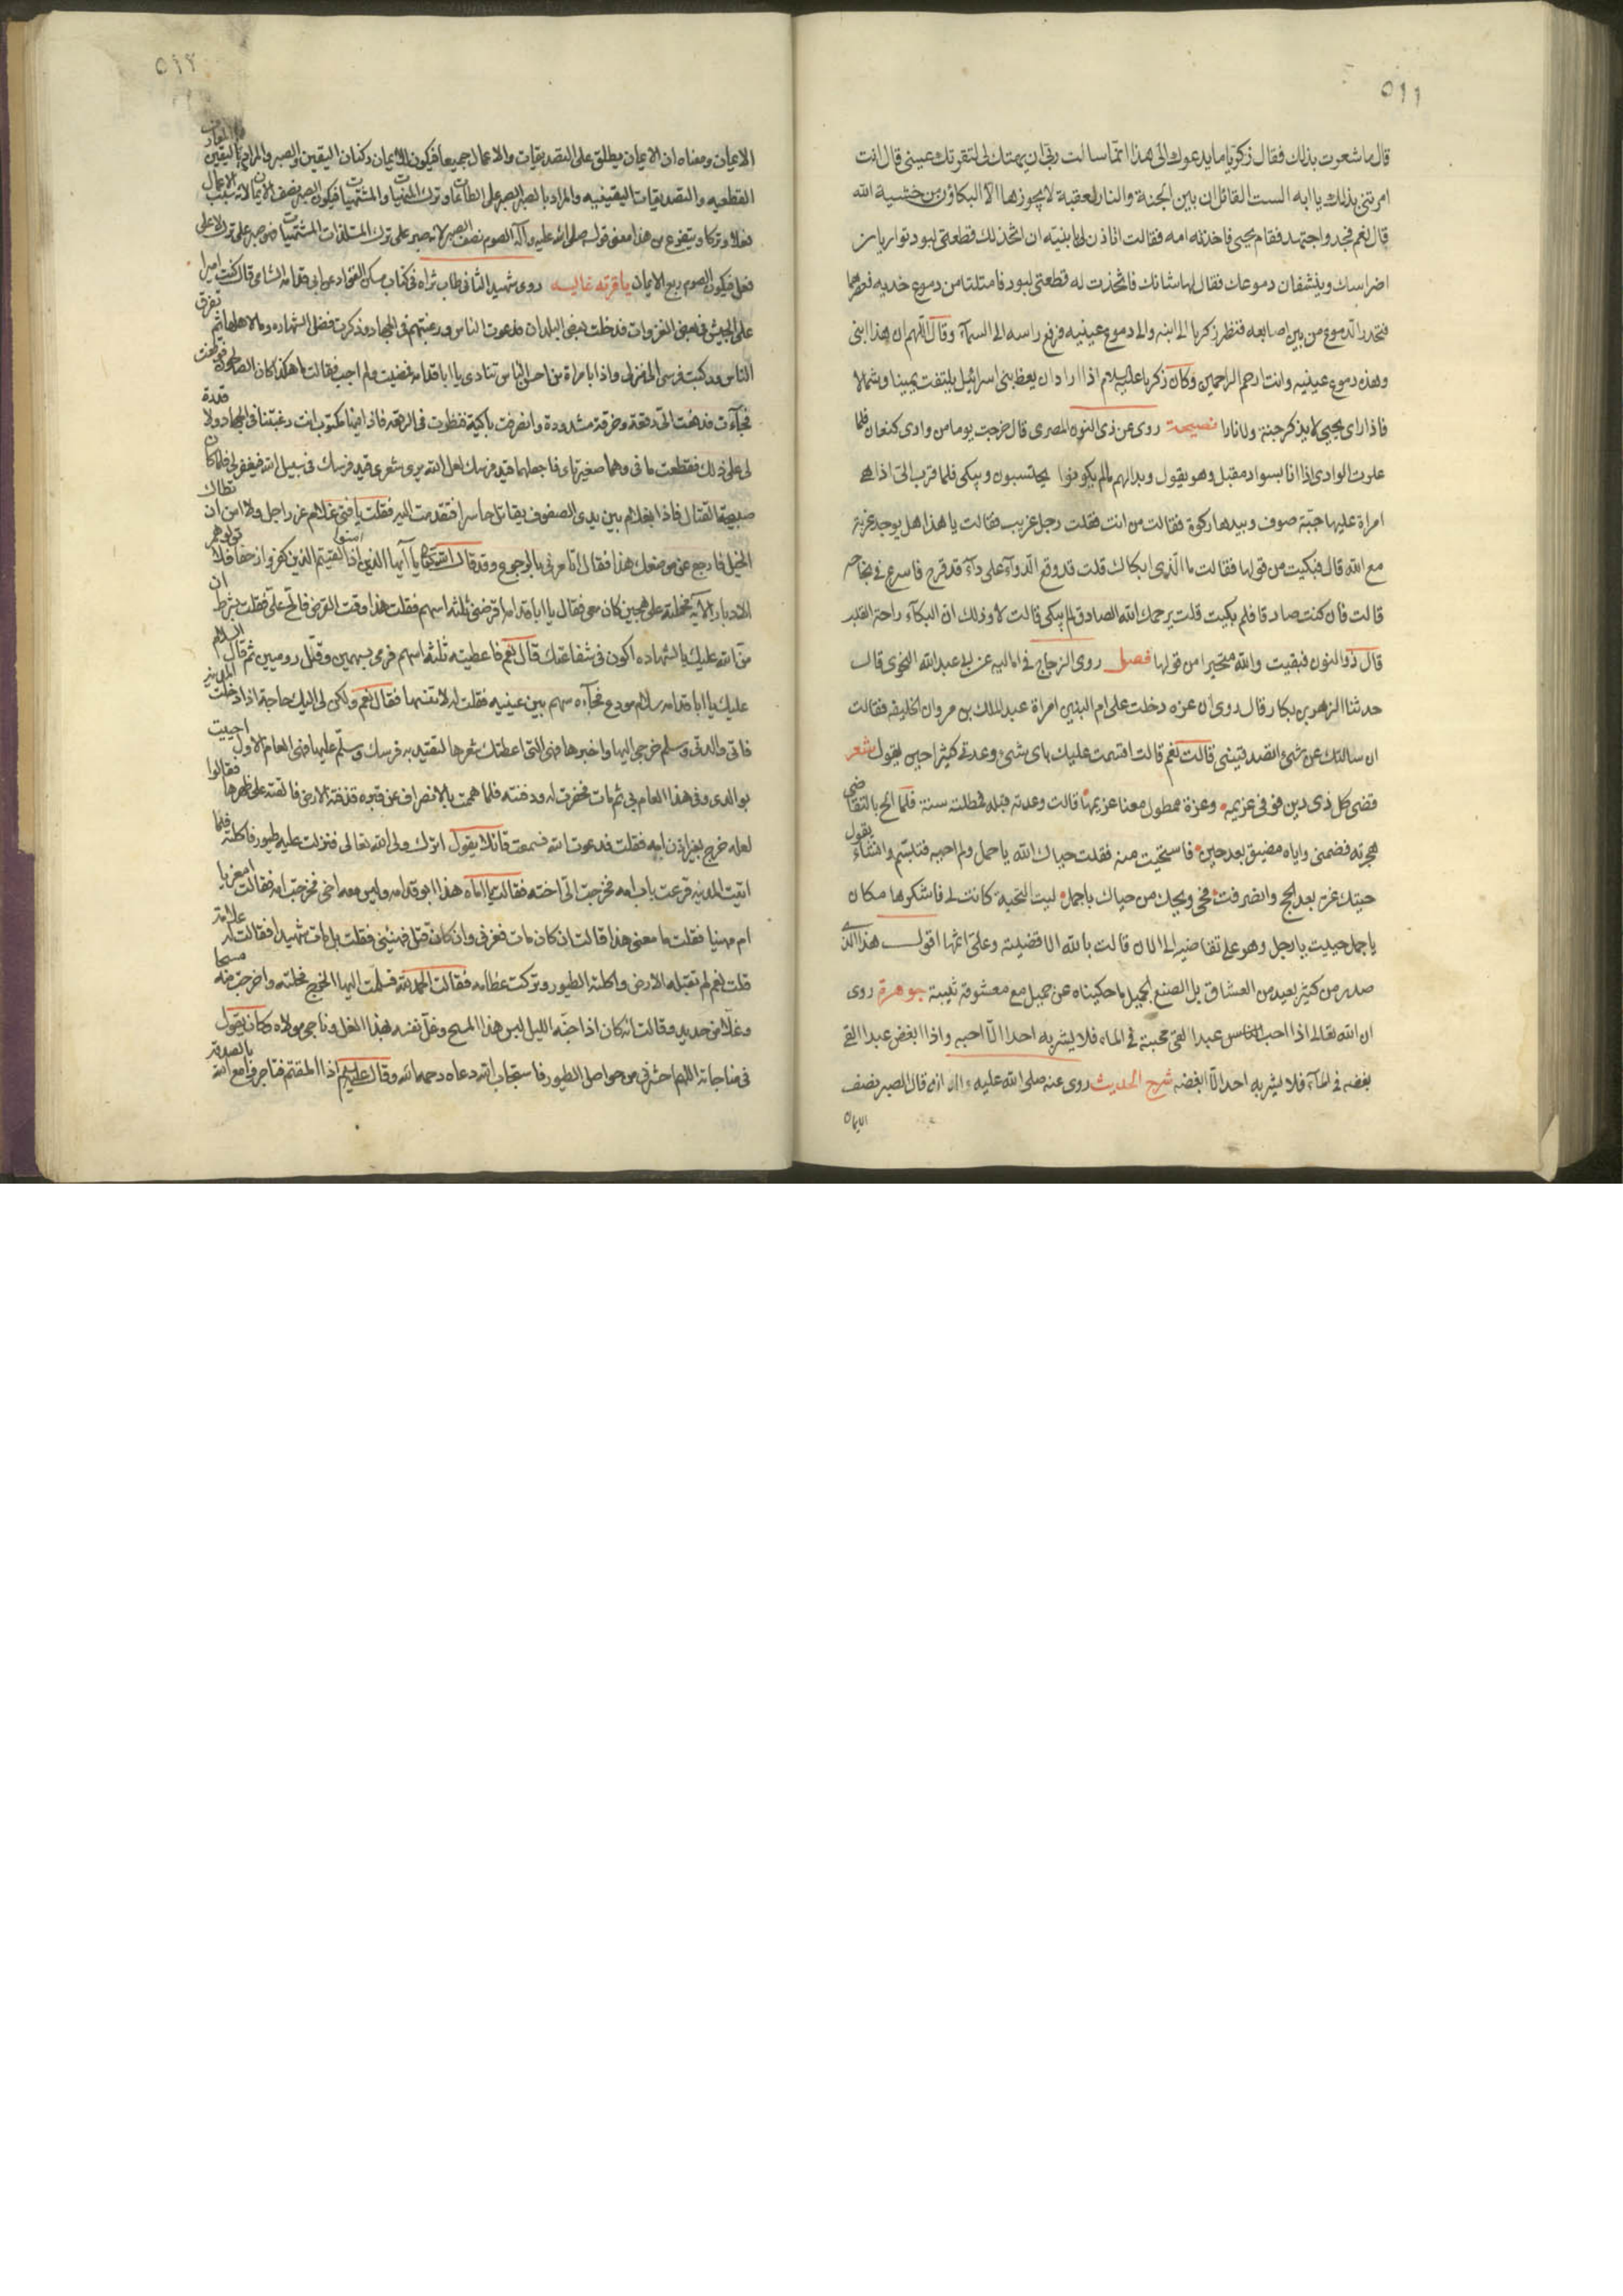 ٥١١
قال ما شعرت بذلك فقال زكريا ما يدعوك الى هذا انما سالت ربى ان يهبك لى لتقر بك عينى قال انت
امرتنى بذلك يا ابه الست القائل ان بين الجنة والنار لعقبة لا يجوزها الا البكاؤن من خشية الله
قال نعم فجد واجتهد فقام يحيى فاخذته امه فقالت اتاذن لى يا بنيه ان اتخذ لك قطعتى لبود تواريان
اضراسك وينشفان دموعك فقال لها شانك فاتخذت له قطعتى لبود فامتلتا من دموع خديه فعصرهما
فتحدر الدموع من بين اصابعه فنظر زكريا الى ابنه والى دموع عينيه فرفع راسه الى السمآء وقال اللهم ان هذا ابنى
وهذه دموع عينيه وانت ارحم الراحمين وكان زكريا عليه السلام اذا اراد ان يعظ بنى اسرائيل يلتفت يمينا وشمالا
فاذا راى يحيى لا يذكر جنة ولا نارا نصيحة روى عن ذى النون المصرى قال خرجت يوما من وادى كنعان فلما
علوت الوادى اذا انا بسواد مقبل وهو يقول وبدا لهم ما لم يكونوا يحتسبون ويبكى فلما قرب الى اذا هى
امراة عليها جبة صوف وبيدها ركوة فقالت من انت فقلت رجل غريب فقالت يا هذا هل يوجد غربة
مع الله قال فبكيت من قولها فقالت ما الذى ابكاك قلت قد وقع الدوآء على دآء قد قرح فاسرع فى نجاحه
قالت فان كنت صادقا فلم بكيت قلت يرحمك الله الصادق لم يبكى قالت لا وذلك ان البكآء راحة القلب
قال ذو النون فبقيت والله متحيرا من قولها فصل روى الزجاج فى اماليه عن ابى عبد الله النحوى قال
حدثنا الزهير بن بكار قال روى ان عزه دخلت على ام البنين امراة عبد الملك بن مروان الخليفه فقالت
ان سالتك عن شئ اتصدقينى قالت نعم قالت اقسمت عليك باى شئ وعدتى كثيرا حين يقول شعر
قضى كل ذى دين فوفى غريمه وعزة ممطول معنا غريمها قالت وعدته قبله فمطلته سنة فلما الح بالتقاضى
هجرته فضمنى واياه مضيق بعد حين فاستحيت منه فقلت حياك الله يا جمل ولم احيه فتبسم وانشاء يقول
حيتك عزة بعد الحج وانصرفت فحى ويحك من حياك يا جمل ليت التحية كانت لى فاشكرها مكان
يا جمل حييت يا رجل وهو على تقاضيه الى الان قالت بالله الا قضيته وعلى اثمها اقول هذا الذى
صدر من كثير بعيد من العشاق بل الصنع الجميل ما حكيناه عن جميل مع معشوقه بثينة جوهرة روى
ان الله تعالى اذا احب الناس عبدا القى محبته فى الماء فلا يشربه احد الا احبه واذا ابغض عبدا القى
بغضه فى المآء فلا يشربه احد الا ابغضه شرح الحديث روى عنه صلى الله عليه واله انه قال الصبر نصف
الايمان
٥١٢
الايمان ومعناه ان الايمان يطلق على التصديقات والاعمال جميعا فيكون للايمان ركنان اليقين والصبر والمراد باليقين المعارف
القطعيه والتصديقات اليقينيه والمراد بالصبر الصبر على الطاعات وترك المنهيات والمشتهيات فيكون الصبر نصف الايمان لانه سبب الاعمال
فعلا وتركا ويتفرع من هذا معنى قوله صلى الله عليه وآله الصوم نصف الصبر لانه صبر على ترك المستلذات المشتهيات
فعل فيكون الصوم ربع الايمان يا قرته غاليه روى شهيد الثانى طاب ثراه فى كتاب مسكن الفواد عن ابى قدامه الشامى قال كنت اميرا
على الجيش فى بعض الغزوات فدخلت بعض البلدان فدعوت الناس ورغبتهم فى الجهاد وذكرت فضل الشهاده وما لاهلها ثم تفرق
الناس وركبت فرسى الى منزلى واذا بامراة من احسن الناس تنادى يا ابا قدامه فمضيت ولم اجب فقالت ما هكذا كان الصالحون فوقفت
فجآءت فدفعت الى رقعة وخرقة مشدودة وانصرفت باكية فنظرت فى الرقعه فاذا فيها مكتوب انت رغبتنا فى الجهاد ولا قدرة
لى على ذلك فقطعت ما فى وهما صغيرتاى فاجعلهما قيد فرسك لعل الله يرى شعرى قيد فرسك فى سبيل الله فيغفر لى فلما كان
صبيحة القتال فاذا بغلام بين يدى الصفوف يقاتل حاسرا فتقدمت اليه فقلت يا فتى غلام غر راجل ولا امن ان
الخيل فارجع عن موضعك هذا فقال اتامرنى بالرجوع وقد قال الله تعالى يا ايها الذين امنوا اذا لقيتم الذين كفروا زحفا فلا تولوهم
الادبار الآيه فحملته على هجين كان معى فقال يا ابا قدامه اقرضنى ثلثه اسهم فقلت هذا وقت القرض فالح على فقلت بشرط ان
من الله عليك بالشهاده اكون فى شفاعتك قال نعم فاعطيته ثلثه اسهم فرمى بسهمين وقتل روميين ثم قال السلم
عليك يا ابا قدامه سلام مودع فجآءه سهم بين عينيه فقلت له لا تنسها فقال نعم ولكن لى اليك حاجة اذا دخلت المدينه
فاتى والدتى وسلم خرجى اليها واخبرها فهى التى اعطتك شعرها لتقيد به فرسك وسلم عليها فهى العام الاول اصيبت
بوالدى وفى هذا العام بى ثم مات فحفرت له ودفنته فلما هممت بالانصراف عن قبره قذفته الارض فالقته على ظهرها فقالوا
لعله خرج بغير اذن امه فقلت فدعوت الله فسمعت قائلا يقول اترك ولى الله تعالى فنزلت عليه طيور فاكلته فلما
اتيت المدينه قرعت باب امه فخرجت الى اخته فقالت يا اماه هذا ابو قدامه وليس معه اخى فخرجت امه فقالت امعزيا
ام مهنيا فقلت ما معنى هذا قالت ان كان مات فعزنى وان كان قتل فهنئنى فقلت بل مات شهيدا فقالت له علامة
قلت نعم لم تقبله الارض واكلته الطيور وتركت عظامه فقالت الحمد لله فسلمت اليها الخرج فحلته واخرجت منه مسحا
وغلا من حديد وقالت انه كان اذا جنه الليل لبس هذا المسح وغل نفسه بهذا الغل وناجى مولاه وكان يقول
فى مناجاته اللهم احشرنى من حواصل الطيور فاستجاب الله دعاه رحمه الله وقال عليه السلم اذا املقتم فتاجروا مع الله بالصدقه